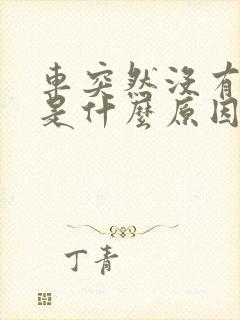 車突然沒有
是什麼原因
丁青